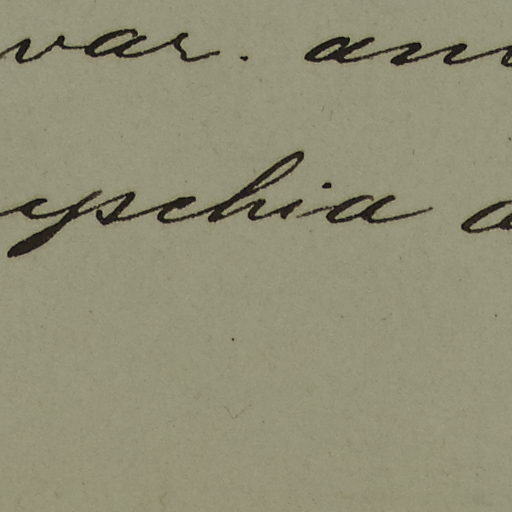 var. am
ypschia a